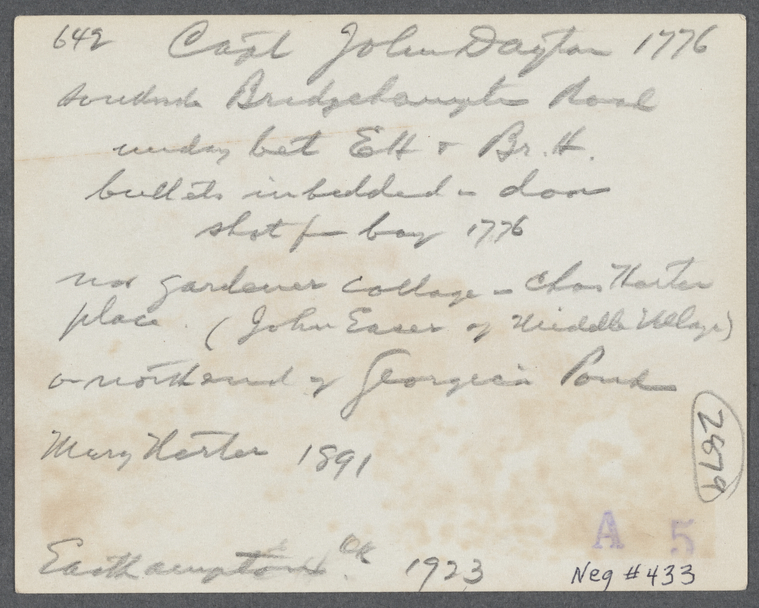 642 Capt John Dayton 1776
Southside Bridgehampton Road
midway bet EH & Br. H.
bullets inbedded in door
shot fr bay 1776
now gardener cottage on Chas Harter
place. (John Easer of Middle Village)
on north end of Georgica Pond
Mary Harter 1891
2879
A 5
Easthampton OK 1923
Neg #433